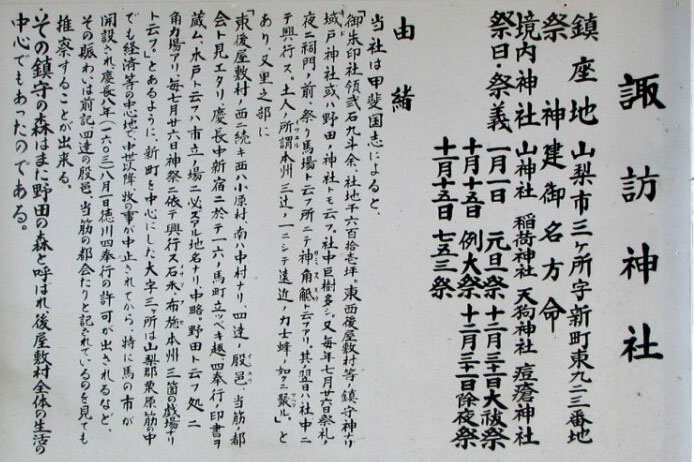 諏訪神社
鎮座地 山梨市三ヶ所字新町東九二三番地
祭神 建御名方命
境内神社 山神社 稲荷神社 天狗神社 痘瘡神社
祭日・祭義 一月一日 元旦祭 十二月三十日大祓祭
十月十五日 例大祭 十二月三十一日除夜祭
十一月十五日 七五三祭
由緒
当社は甲斐国志によると、
「御朱印社領弐石九斗余、社地千六百拾壱坪。東西後屋敷村等ノ鎮守神ナリ
城戸神社或ハ野田ノ神社トモ云フ。社中巨樹多シ。又毎年七月廿六日祭礼、
夜ニ祠門ノ前、祭り馬場ト云フ所ニテ神角觝ト云フアリ。其ノ翌日ハ社中ニ
テ興行ス、土人ノ所謂本州三辻ノ一ニシテ遠近ノ力士蜂ノ如クニ聚ル。」と
あり、又里之部に
「東後屋敷村ノ西ニ続キ西ハ小原村、南ハ中村ナリ、四達ノ殷邑、当筋ノ都
会ト見エタリ、慶長中新宿ニ於テ一六ノ馬町立ツベキ趣四奉行ノ印書ヲ
蔵ム、水戸ト云フハ市立ノ場ニ必ズアル地名ナリ、中略。野田ト云フ処ニ
角力場アリ、毎七月廿六日神祭ニ依テ興行ス石承、布施本州三箇の戯場ナリ
ト云フ。」とあるように、新町を中心にした大字三ヶ所は山梨郡栗原筋の中
でも経済等の中心地で、中世以降牧の事が中止されてから、特に馬の市が
開設され慶長八年(一六〇三)八月一日徳川四奉行の許可が出されるなど、
その賑わいは前記四達の殷邑、当筋の都会たりと記されているのを見ても
推察することが出来る。
・その鎮守の森はまた野田の森と呼ばれ後屋敷村全体の生活の
中心でもあったのである。